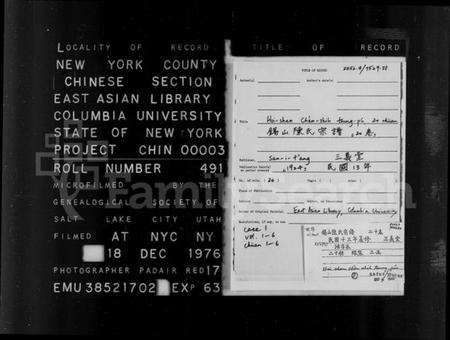 LOCALITY OF RECORD
NEW YORK COUNTY
CHINESE SECTION
EAST ASIAN LIBRARY
COLUMBIA UNIVERSITY
STATE OF NEW YORK
PROJECT CHIN 00003
ROLL NUMBER 491
MICROFILMED BY THE
GENEALOGICAL SOCIETY
SALT LAKE CITY UTAH
FILMED AT NYC NY
18 DEC 1976
PHOTOGRAPHER PADAIR RED 17
EMU 38521702 EXP 63
TITLE OF RECORD
TITLE OF RECORD
2252.9/7529.88
Author(s)
Title Hsi-shan Chên-shih tsung-p'u, 20 chüan
錫山陳氏宗譜, 20卷
San-i-t'ang 三義堂
1924, 民國13年
No. of vols. 20
Place of Publication
East Asian Library, Columbia University
case 1
vol. 1-6
chüan 1-6
錫山陳氏宗譜 二十卷
民國十三年 三義堂